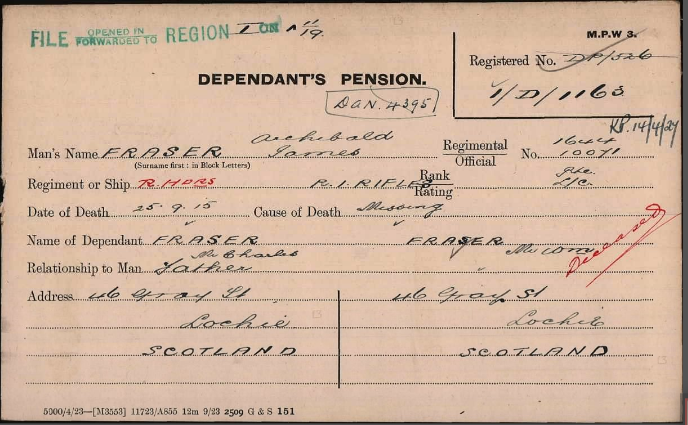 FILE OPENED IN FORWARDED TO REGION I ON 11/19
M.P.W 3.
Registered No. DP/526
DEPENDANT'S PENSION.
DAN. 4395
1/D/1163
KP. 14/4/27
Man's Name FRASER Archibald James Regimental Official No. 1644 10071
(Surname first: in Block Letters)
Regiment or Ship R. HDRS R. I. RIFLES Rank Rating Pte. L/C.
Date of Death 25. 9. 15 Cause of Death Missing
Name of Dependant FRASER FRASER
Mr Charles Mr Wm Deceased
Relationship to Man Father
Address 46 Gray St 46 Gray St
Lochie Lochie
SCOTLAND SCOTLAND
5000/4/23—[M3553] 11723/A855 12m 9/23 2509 G & S 151